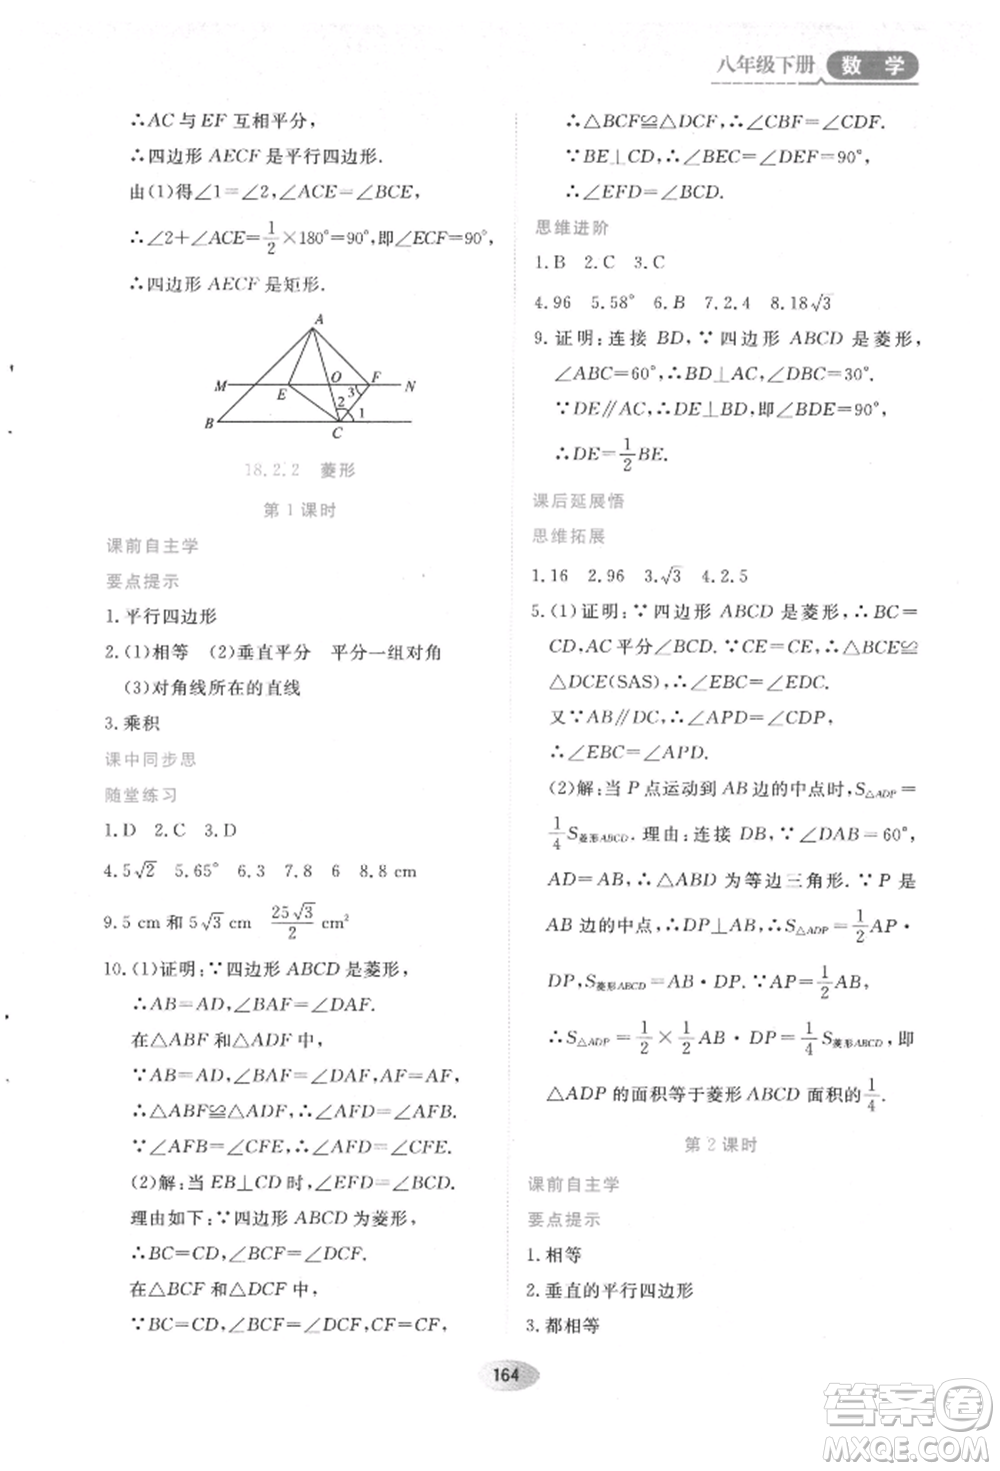 八年级下册 数 学
∴AC 与 EF 互相平分，
∴四边形 AECF 是平行四边形.
由(1)得∠1=∠2,∠ACE=∠BCE,
∴∠2+∠ACE=1/2×180°=90°,即∠ECF=90°,
∴四边形 AECF 是矩形.
A
M E O 3 F N
B 2 C 1
18.2.2 菱形
第 1 课时
课前自主学
要点提示
1.平行四边形
2.(1)相等 (2)垂直平分 平分一组对角
(3)对角线所在的直线
3.乘积
课中同步思
随堂练习
1.D 2.C 3.D
4.5√2 5.65° 6.3 7.8 8.8 cm
9.5 cm 和 5√3 cm 25√3/2 cm²
10.(1)证明:∵四边形 ABCD 是菱形,
∴AB=AD,∠BAF=∠DAF.
在△ABF 和△ADF 中,
∵AB=AD,∠BAF=∠DAF,AF=AF,
∴△ABF≌△ADF,∴∠AFB=∠AFD.
∵∠AFB=∠CFE,∴∠AFD=∠CFE.
(2)解:当 EB⊥CD 时,∠EFD=∠BCD.
理由如下:∵四边形 ABCD 为菱形,
∴BC=CD,∠BCF=∠DCF.
在△BCF 和△DCF 中,
∵BC=CD,∠BCF=∠DCF,CF=CF,
∴△BCF≌△DCF,∴∠CBF=∠CDF.
∵BE⊥CD,∴∠BEC=∠DEF=90°,
∴∠EFD=∠BCD.
思维进阶
1.B 2.C 3.C
4.96 5.58° 6.B 7.2.4 8.18√3
9.证明:连接 BD,∵四边形 ABCD 是菱形,
∠ABC=60°,∴BD⊥AC,∠DBC=30°.
∵DE∥AC,∴DE⊥BD,即∠BDE=90°,
∴DE=1/2BE.
课后延展悟
思维拓展
1.16 2.96 3.√3 4.2.5
5.(1)证明:∵四边形 ABCD 是菱形,∴BC=
CD,AC 平分∠BCD.∵CE=CE,∴△BCE≌
△DCE(SAS),∴∠EBC=∠EDC.
又∵AB∥DC,∴∠APD=∠CDP,
∴∠EBC=∠APD.
(2)解:当 P 点运动到 AB 边的中点时,S△ADP=
1/4S菱形ABCD.理由:连接 DB,∵∠DAB=60°,
AD=AB,∴△ABD 为等边三角形.∵P 是
AB 边的中点,∴DP⊥AB,∴S△ADP=1/2AP·
DP,S菱形ABCD=AB·DP.∵AP=1/2AB,
∴S△ADP=1/2×1/2AB·DP=1/4S菱形ABCD,即
△ADP 的面积等于菱形 ABCD 面积的1/4.
第 2 课时
课前自主学
要点提示
1.相等
2.垂直的平行四边形
3.都相等
164
答案卷
MXQE.COM